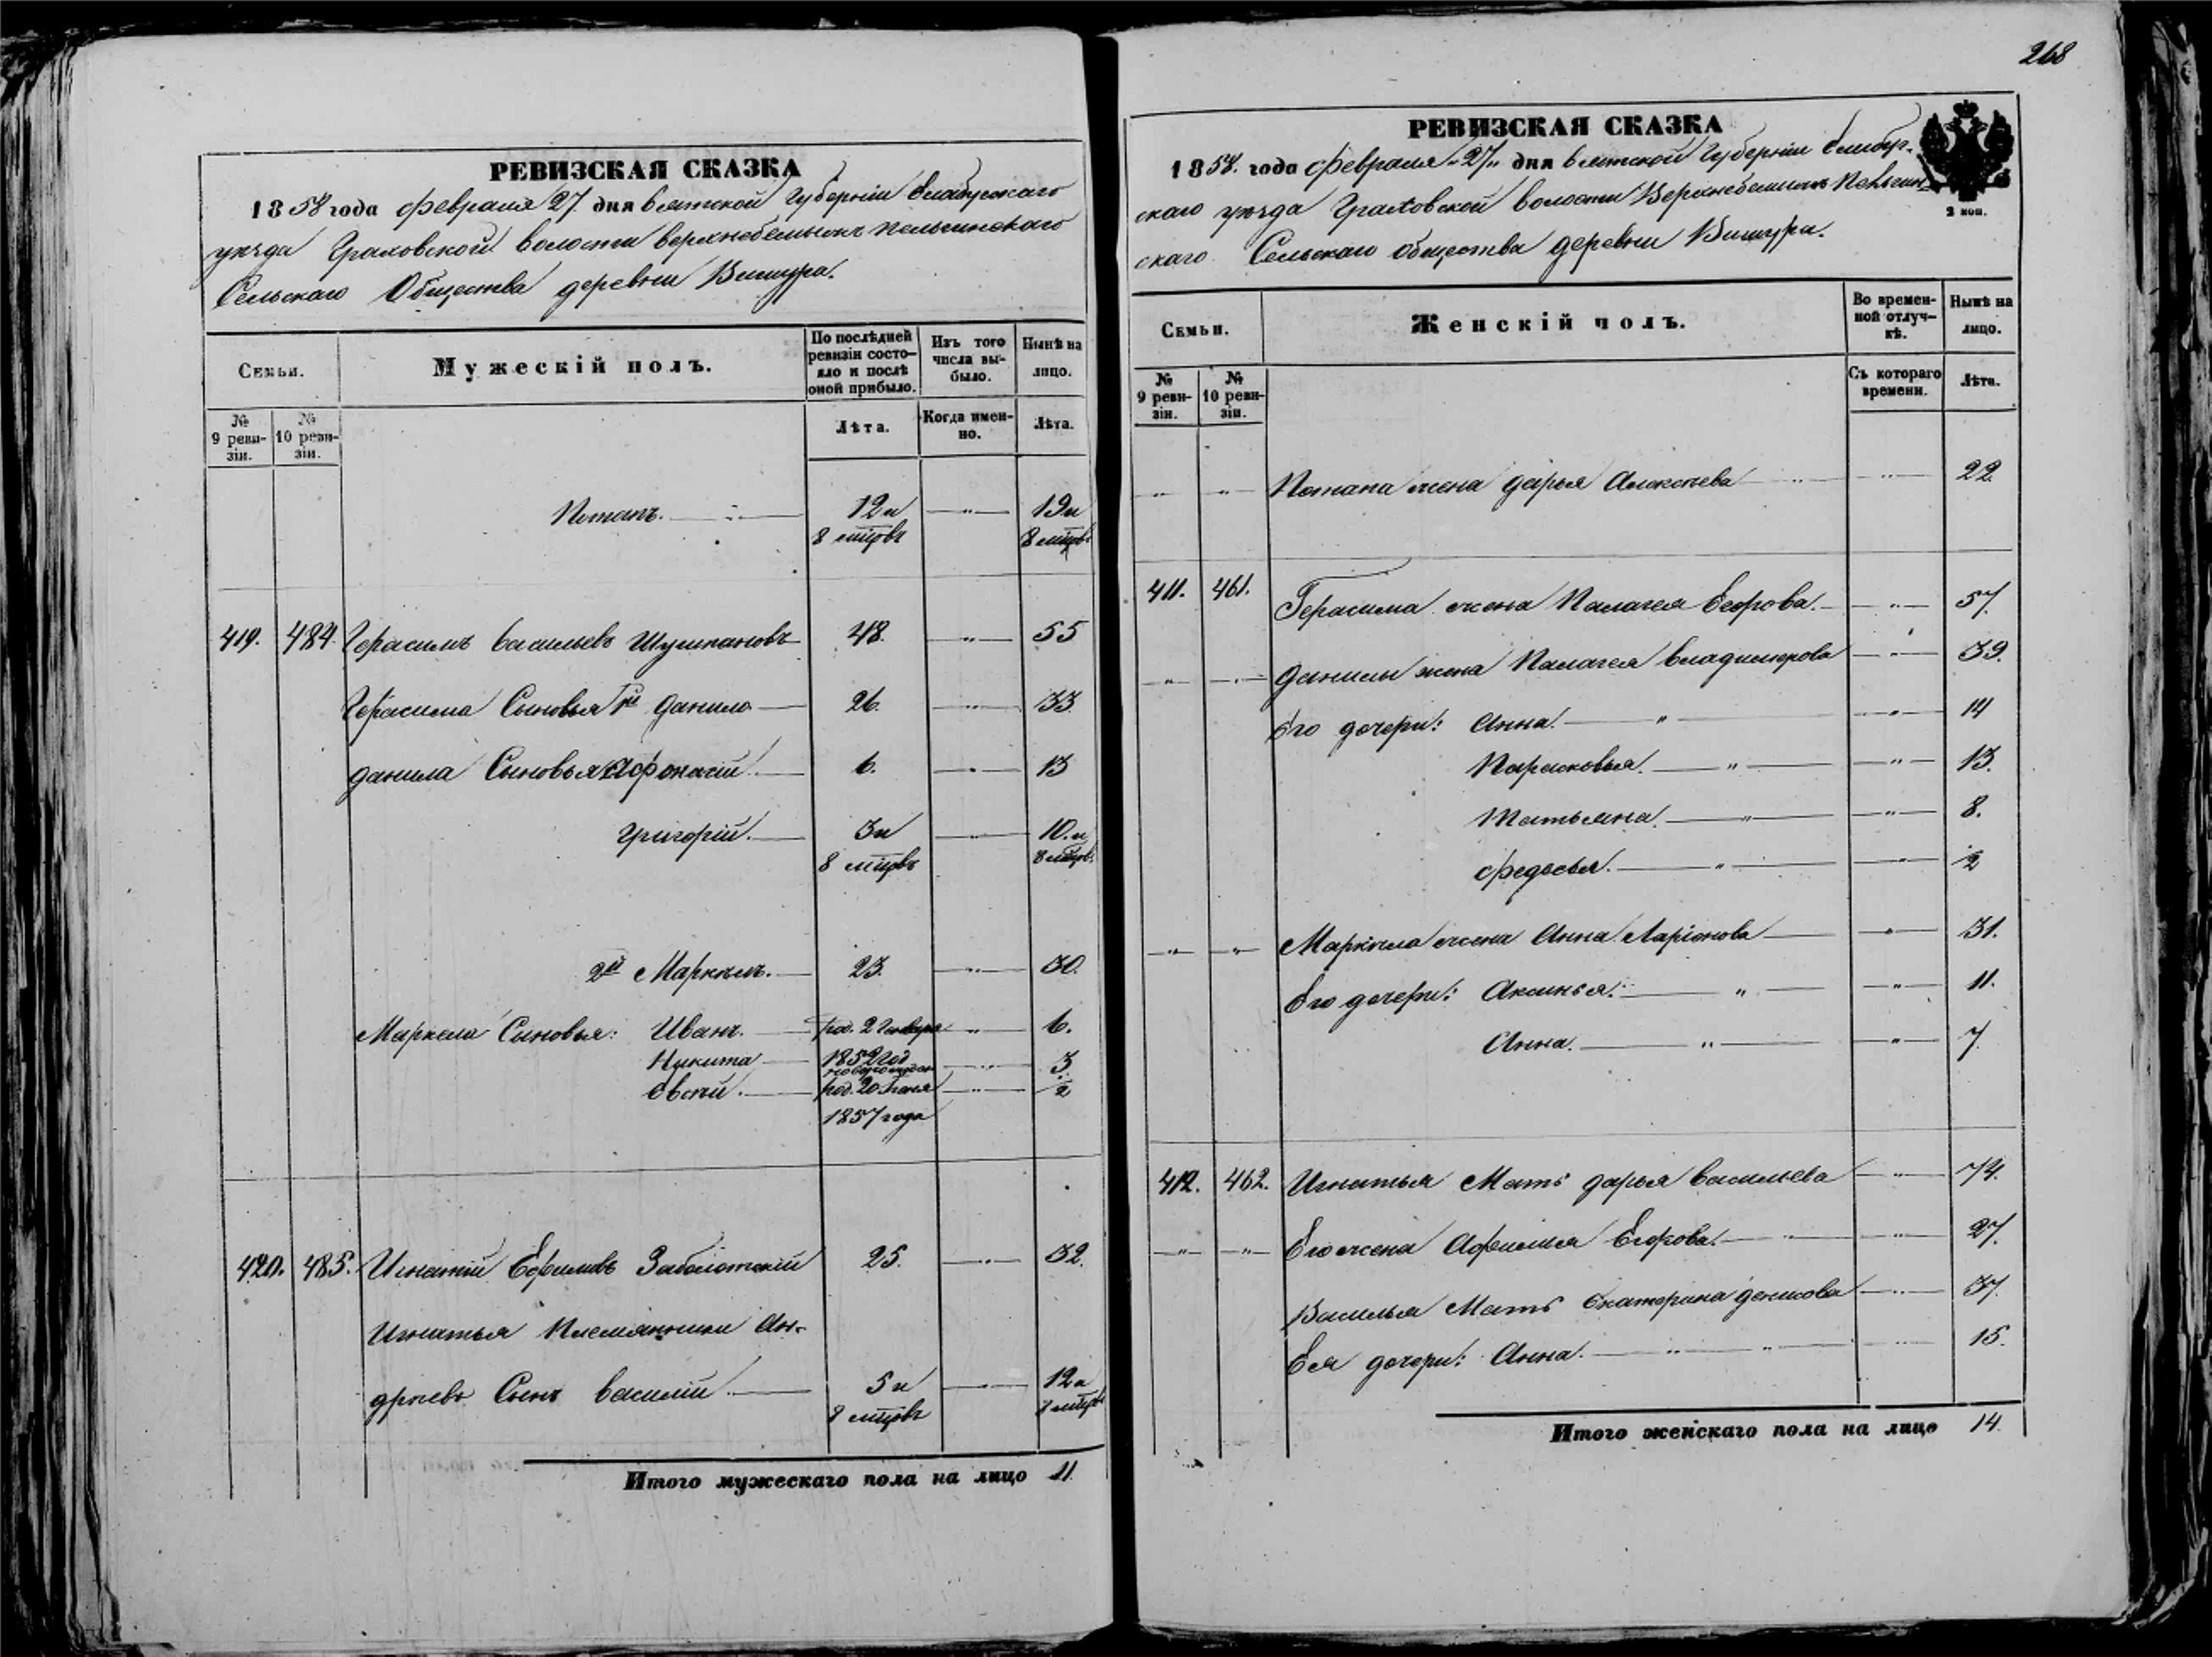 РЕВИЗСКАЯ СКАЗКА
1858 года февраля 27 дня Вятской Губерніи Елабужскаго
уѣзда Граховской волости
Сельскаго Общества деревни Вишура.
Семьи.
Мужескій полъ.
По послѣдней ревизіи состояло и послѣ оной прибыло.
Изъ того числа выбыло.
Нынѣ на лицо.
№ 9 ревизіи.
№ 10 ревизіи.
Лѣта.
Когда именно.
Лѣта.
Потапъ. 12 и 19 и
8 мцовъ 8 мцовъ
419. 484. Герасимъ Васильевъ Шушпановъ 48. 55
Герасима Сыновья 1й Данило 26. 33.
Данила Сыновья Афонасій 6. 13
Григорій. 3 и 10. и
8 мцовъ 8 мцовъ
2й Маркелъ. 23. 30.
Маркела Сыновья: Иванъ. Род. 2 Генваря 6.
Никита 1852 год 3
Евсѣй. род. 20 1/2
1857 года
420. 485. Игнатій Ефимовъ Заболотскій 25. 32.
Игнатья Племянники Ан-
дрѣевъ Сынъ Василій. 5 и 12 и
8 мцовъ 8 мцовъ
Итого мужескаго пола на лицо 11.
268
РЕВИЗСКАЯ СКАЗКА
1858. года февраля "27" дня Вятской Губерніи Елабуж-
скаго уѣзда Граховской волости
скаго Сельскаго Общества деревни Вишура.
2 коп.
Семьи.
Женскій полъ.
Во временной отлучкѣ.
Нынѣ на лицо.
№ 9 ревизіи.
№ 10 ревизіи.
Съ котораго времени.
Лѣта.
Потапа жена Дарья Алексѣева 22.
411. 461. Герасима жена Палагея Егорова. 57.
Данилы жена Палагея Владимирова 39.
Его дочери: Анна. 14
Парасковья. 13.
Татьяна. 8.
Федосья. 1/2
Маркела жена Анна Ларіонова 31.
Его дочери: Аксинья. 11.
Анна. 7.
412. 462. Игнатья Мать Дарья Васильева 74.
Его жена Афимья Егорова. 27.
Василья Мать Екатерина Денисова 37.
Ея дочери: Анна. 15.
Итого женскаго пола на лицо 14.